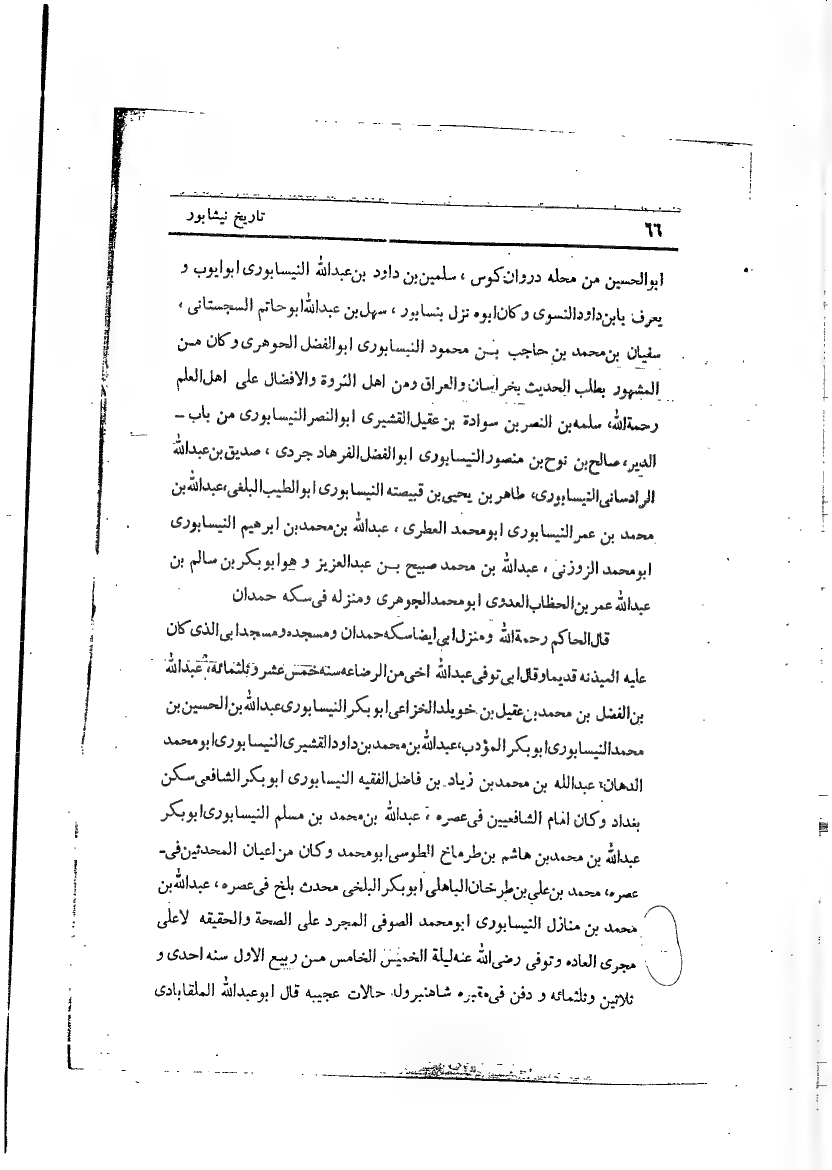 ٦٦
تاریخ نیشابور
ابوالحسین من محله دروان‌کوس ، سلمین‌بن داود بن‌عبدالله النیسابوری ابوایوب و
یعرف بابن‌داودالنسوی وکان‌ابوه نزل بنسابور ، سهل‌بن عبدالله‌ابوحاتم السجستانی ،
سفیان بن‌محمد بن‌حاجب بـن محمود النیسابوری ابوالفضل الجوهری وکان مـن
المشهور بطلب الحدیث بخراسان‌والعراق ومن اهل الثروة والافضال علی اهل‌العلم
رحمةالله، سلمه‌بن النصربن سوادة بن‌عقیل‌القشیری ابوالنصرالنیسابوری من باب ـ
الدیر، صالح‌بن نوح‌بن منصورالنیسابوری ابوالفضل‌الفرهادجردی ، صدیق‌بن‌عبدالله
الرادسانی‌النیسابوری، طاهربن یحیی‌بن قبیصته النیسابوری ابوالطیب‌البلغی،عبدالله‌بن
محمد بن عمرالنیسابوری ابومحمد العطری ، عبدالله بن‌محمدبن ابرهیم النیسابوری
ابومحمد الزوزنی ، عبدالله بن محمد صبیح بـن عبدالعزیز و هوابوبکربن سالم بن
عبدالله عمربن‌الحظاب‌العدوی ابومحمدالجوهری ومنزله فی‌سکه حمدان
قال‌الحاکم رحمةالله ومنزل‌ابی‌ایضاسکه‌حمدان ومسجده‌ومسجدابی‌الذی‌کان
علیه المیذنه قدیماوقال‌ابی‌توفی‌عبدالله اخی‌من‌الرضاعه‌سنه‌خمس‌عشر وثلثمائه، عبدالله
بن‌الفضل بن محمدبن‌عقیل‌بن خویلدالخزاعی‌ابوبکرالنیسابوری‌عبدالله‌بن‌الحسین‌بن
محمدالنیسابوری‌ابوبکرالمؤدب،عبدالله‌بن‌محمدبن‌داودالقشیری‌النیسابوری‌ابومحمد
الدهان؛ عبدالله بن محمدبن زیاد بن فاضل‌الفقیه النیسابوری ابوبکرالشافعی‌سکن
بغداد وکان امام الشافعیین فی‌عصره ، عبدالله بن‌محمد بن مسلم النیسابوری‌ابوبکر
عبدالله بن محمدبن هاشم بن‌طرماخ الطوسی‌ابومحمد وکان من‌اعیان المحدثین‌فی‌ـ
عصره، محمد بن‌علی‌بن‌طرخان‌الباهلی ابوبکرالبلخی محدث بلخ فی‌عصره ، عبدالله‌بن
محمد بن منازل النیسابوری ابومحمد الصوفی المجرد علی الصحة والحقیقه لاعلی
مجری العاده وتوفی رضی‌الله عنه‌لیلة الخمیس الخامس مـن ربیع الاول سنه احدی و
ثلاثین وثلثمائه و دفن فی‌مقبره شاهنبروله حالات عجیبه قال ابوعبدالله الملقابادی